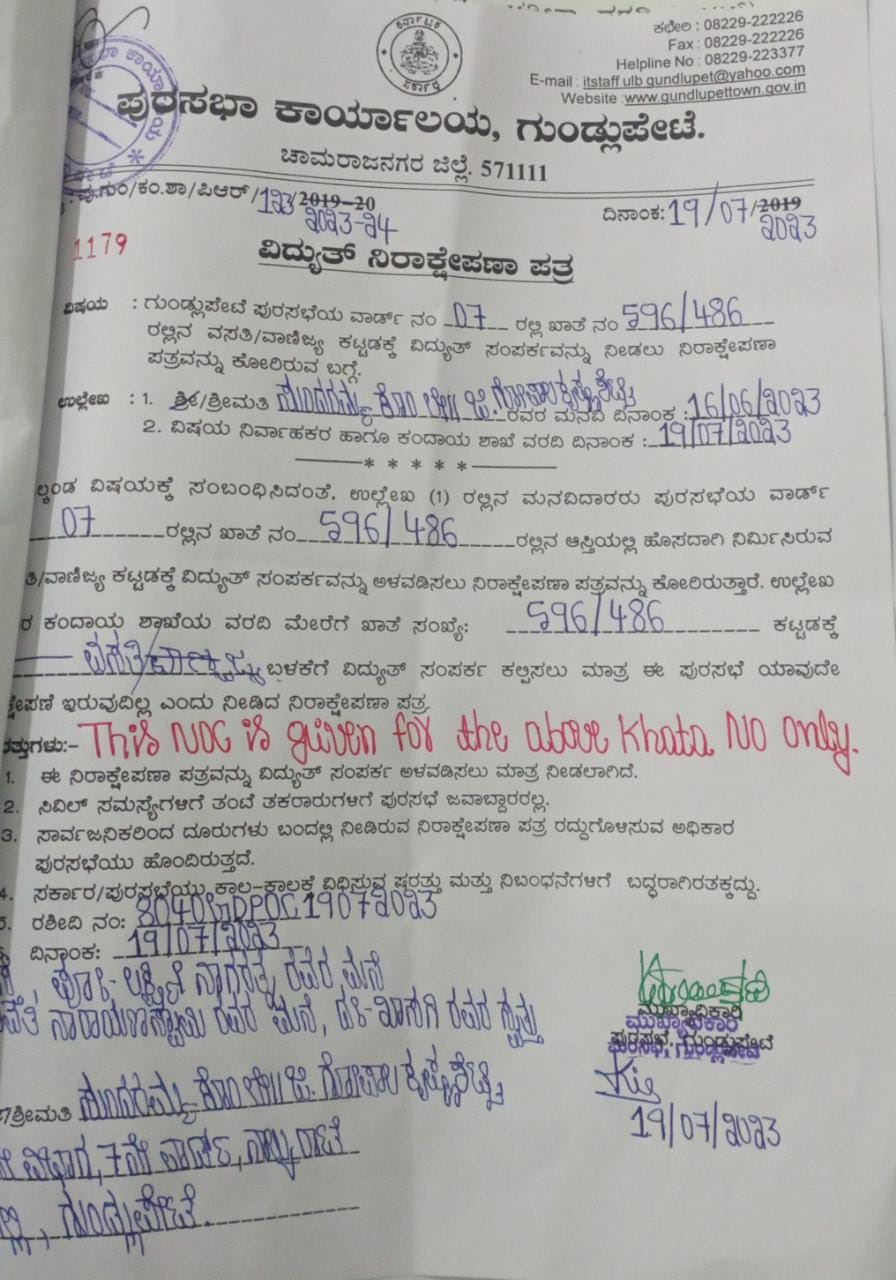 ಕರ್ನಾಟಕ
ಸರ್ಕಾರ
ಕಛೇರಿ : 08229-222226
Fax : 08229-222226
Helpline No : 08229-223377
E-mail : itstaff ulb gundlupet@yahoo.com
Website :www.gundlupettown.gov.in
ಪುರಸಭಾ ಕಾರ್ಯಾಲಯ, ಗುಂಡ್ಲುಪೇಟೆ.
ಚಾಮರಾಜನಗರ ಜಿಲ್ಲೆ. 571111
: ಪು.ಗುಂ/ಕಂ.ಶಾ/ಪಿಆರ್/123/2019-20
2023-24
ದಿನಾಂಕ: 19/07/2019
2023
1179
ವಿದ್ಯುತ್ ನಿರಾಕ್ಷೇಪಣಾ ಪತ್ರ
ವಿಷಯ : ಗುಂಡ್ಲುಪೇಟೆ ಪುರಸಭೆಯ ವಾರ್ಡ್ ನಂ 07 ರಲ್ಲಿ ಖಾತೆ ನಂ 596/486
ರಲ್ಲಿನ ವಸತಿ/ವಾಣಿಜ್ಯ ಕಟ್ಟಡಕ್ಕೆ ವಿದ್ಯುತ್ ಸಂಪರ್ಕವನ್ನು ನೀಡಲು ನಿರಾಕ್ಷೇಪಣಾ
ಪತ್ರವನ್ನು ಕೋರಿರುವ ಬಗ್ಗೆ.
ಉಲ್ಲೇಖ : 1. ಶ್ರೀ/ಶ್ರೀಮತಿ ಸುಂದರಮ್ಮ ಕೋಂ ಲೇ॥ ಜಿ. ಗೋಪಾಲಕೃಷ್ಣಶೆಟ್ಟಿ ರವರ ಮನವಿ ದಿನಾಂಕ :16/06/2023
2. ವಿಷಯ ನಿರ್ವಾಹಕರ ಹಾಗೂ ಕಂದಾಯ ಶಾಖೆ ವರದಿ ದಿನಾಂಕ :19/07/2023
* * * * *
ಲ್ಕಂಡ ವಿಷಯಕ್ಕೆ ಸಂಬಂಧಿಸಿದಂತೆ, ಉಲ್ಲೇಖ (1) ರಲ್ಲಿನ ಮನವಿದಾರರು ಪುರಸಭೆಯ ವಾರ್ಡ್
07 ರಲ್ಲಿನ ಖಾತೆ ನಂ 596/486 ರಲ್ಲಿನ ಆಸ್ತಿಯಲ್ಲಿ ಹೊಸದಾಗಿ ನಿರ್ಮಿಸಿರುವ
ತಿ/ವಾಣಿಜ್ಯ ಕಟ್ಟಡಕ್ಕೆ ವಿದ್ಯುತ್ ಸಂಪರ್ಕವನ್ನು ಅಳವಡಿಸಲು ನಿರಾಕ್ಷೇಪಣಾ ಪತ್ರವನ್ನು ಕೋರಿರುತ್ತಾರೆ. ಉಲ್ಲೇಖ
ರ ಕಂದಾಯ ಶಾಖೆಯ ವರದಿ ಮೇರೆಗೆ ಖಾತೆ ಸಂಖ್ಯೆ: 596/486 ಕಟ್ಟಡಕ್ಕೆ
ವಸತಿ/ವಾಣಿಜ್ಯ ಬಳಕೆಗೆ ವಿದ್ಯುತ್ ಸಂಪರ್ಕ ಕಲ್ಪಿಸಲು ಮಾತ್ರ ಈ ಪುರಸಭೆ ಯಾವುದೇ
ಕ್ಷೇಪಣೆ ಇರುವುದಿಲ್ಲ ಎಂದು ನೀಡಿದ ನಿರಾಕ್ಷೇಪಣಾ ಪತ್ರ.
ರತ್ತುಗಳು:- This NOC is given for the above Khata No only.
1. ಈ ನಿರಾಕ್ಷೇಪಣಾ ಪತ್ರವನ್ನು ವಿದ್ಯುತ್ ಸಂಪರ್ಕ ಅಳವಡಿಸಲು ಮಾತ್ರ ನೀಡಲಾಗಿದೆ.
2. ಸಿವಿಲ್ ಸಮಸ್ಯೆಗಳಿಗೆ ತಂಟೆ ತಕರಾರುಗಳಿಗೆ ಪುರಸಭೆ ಜವಾಬ್ದಾರರಲ್ಲ.
3. ಸಾರ್ವಜನಿಕರಿಂದ ದೂರುಗಳು ಬಂದಲ್ಲಿ ನೀಡಿರುವ ನಿರಾಕ್ಷೇಪಣಾ ಪತ್ರ ರದ್ದುಗೊಳಿಸುವ ಅಧಿಕಾರ
ಪುರಸಭೆಯು ಹೊಂದಿರುತ್ತದೆ.
4. ಸರ್ಕಾರ/ಪುರಸಭೆಯು ಕಾಲ-ಕಾಲಕ್ಕೆ ವಿಧಿಸುವ ಷರತ್ತು ಮತ್ತು ನಿಬಂಧನೆಗಳಿಗೆ ಬದ್ಧರಾಗಿರತಕ್ಕದ್ದು.
5. ರಶೀದಿ ನಂ: 8040GDPOC19072023
ದಿನಾಂಕ: 19/07/2023
ನಾಗರತ್ನ ರವರ ಮನೆ
ರವರ ಮನೆ, ರವರ ಸ್ವತ್ತು
ಮುಖ್ಯಾಧಿಕಾರಿ
ಪುರಸಭೆ, ಗುಂಡ್ಲುಪೇಟೆ
/ಶ್ರೀಮತಿ ಸುಂದರಮ್ಮ ಕೋಂ ಲೇ॥ ಜಿ. ಗೋಪಾಲಕೃಷ್ಣಶೆಟ್ಟಿ
19/07/2023
ವಿಭಾಗ, 7ನೇ ವಾರ್ಡ್,
ಗುಂಡ್ಲುಪೇಟೆ.